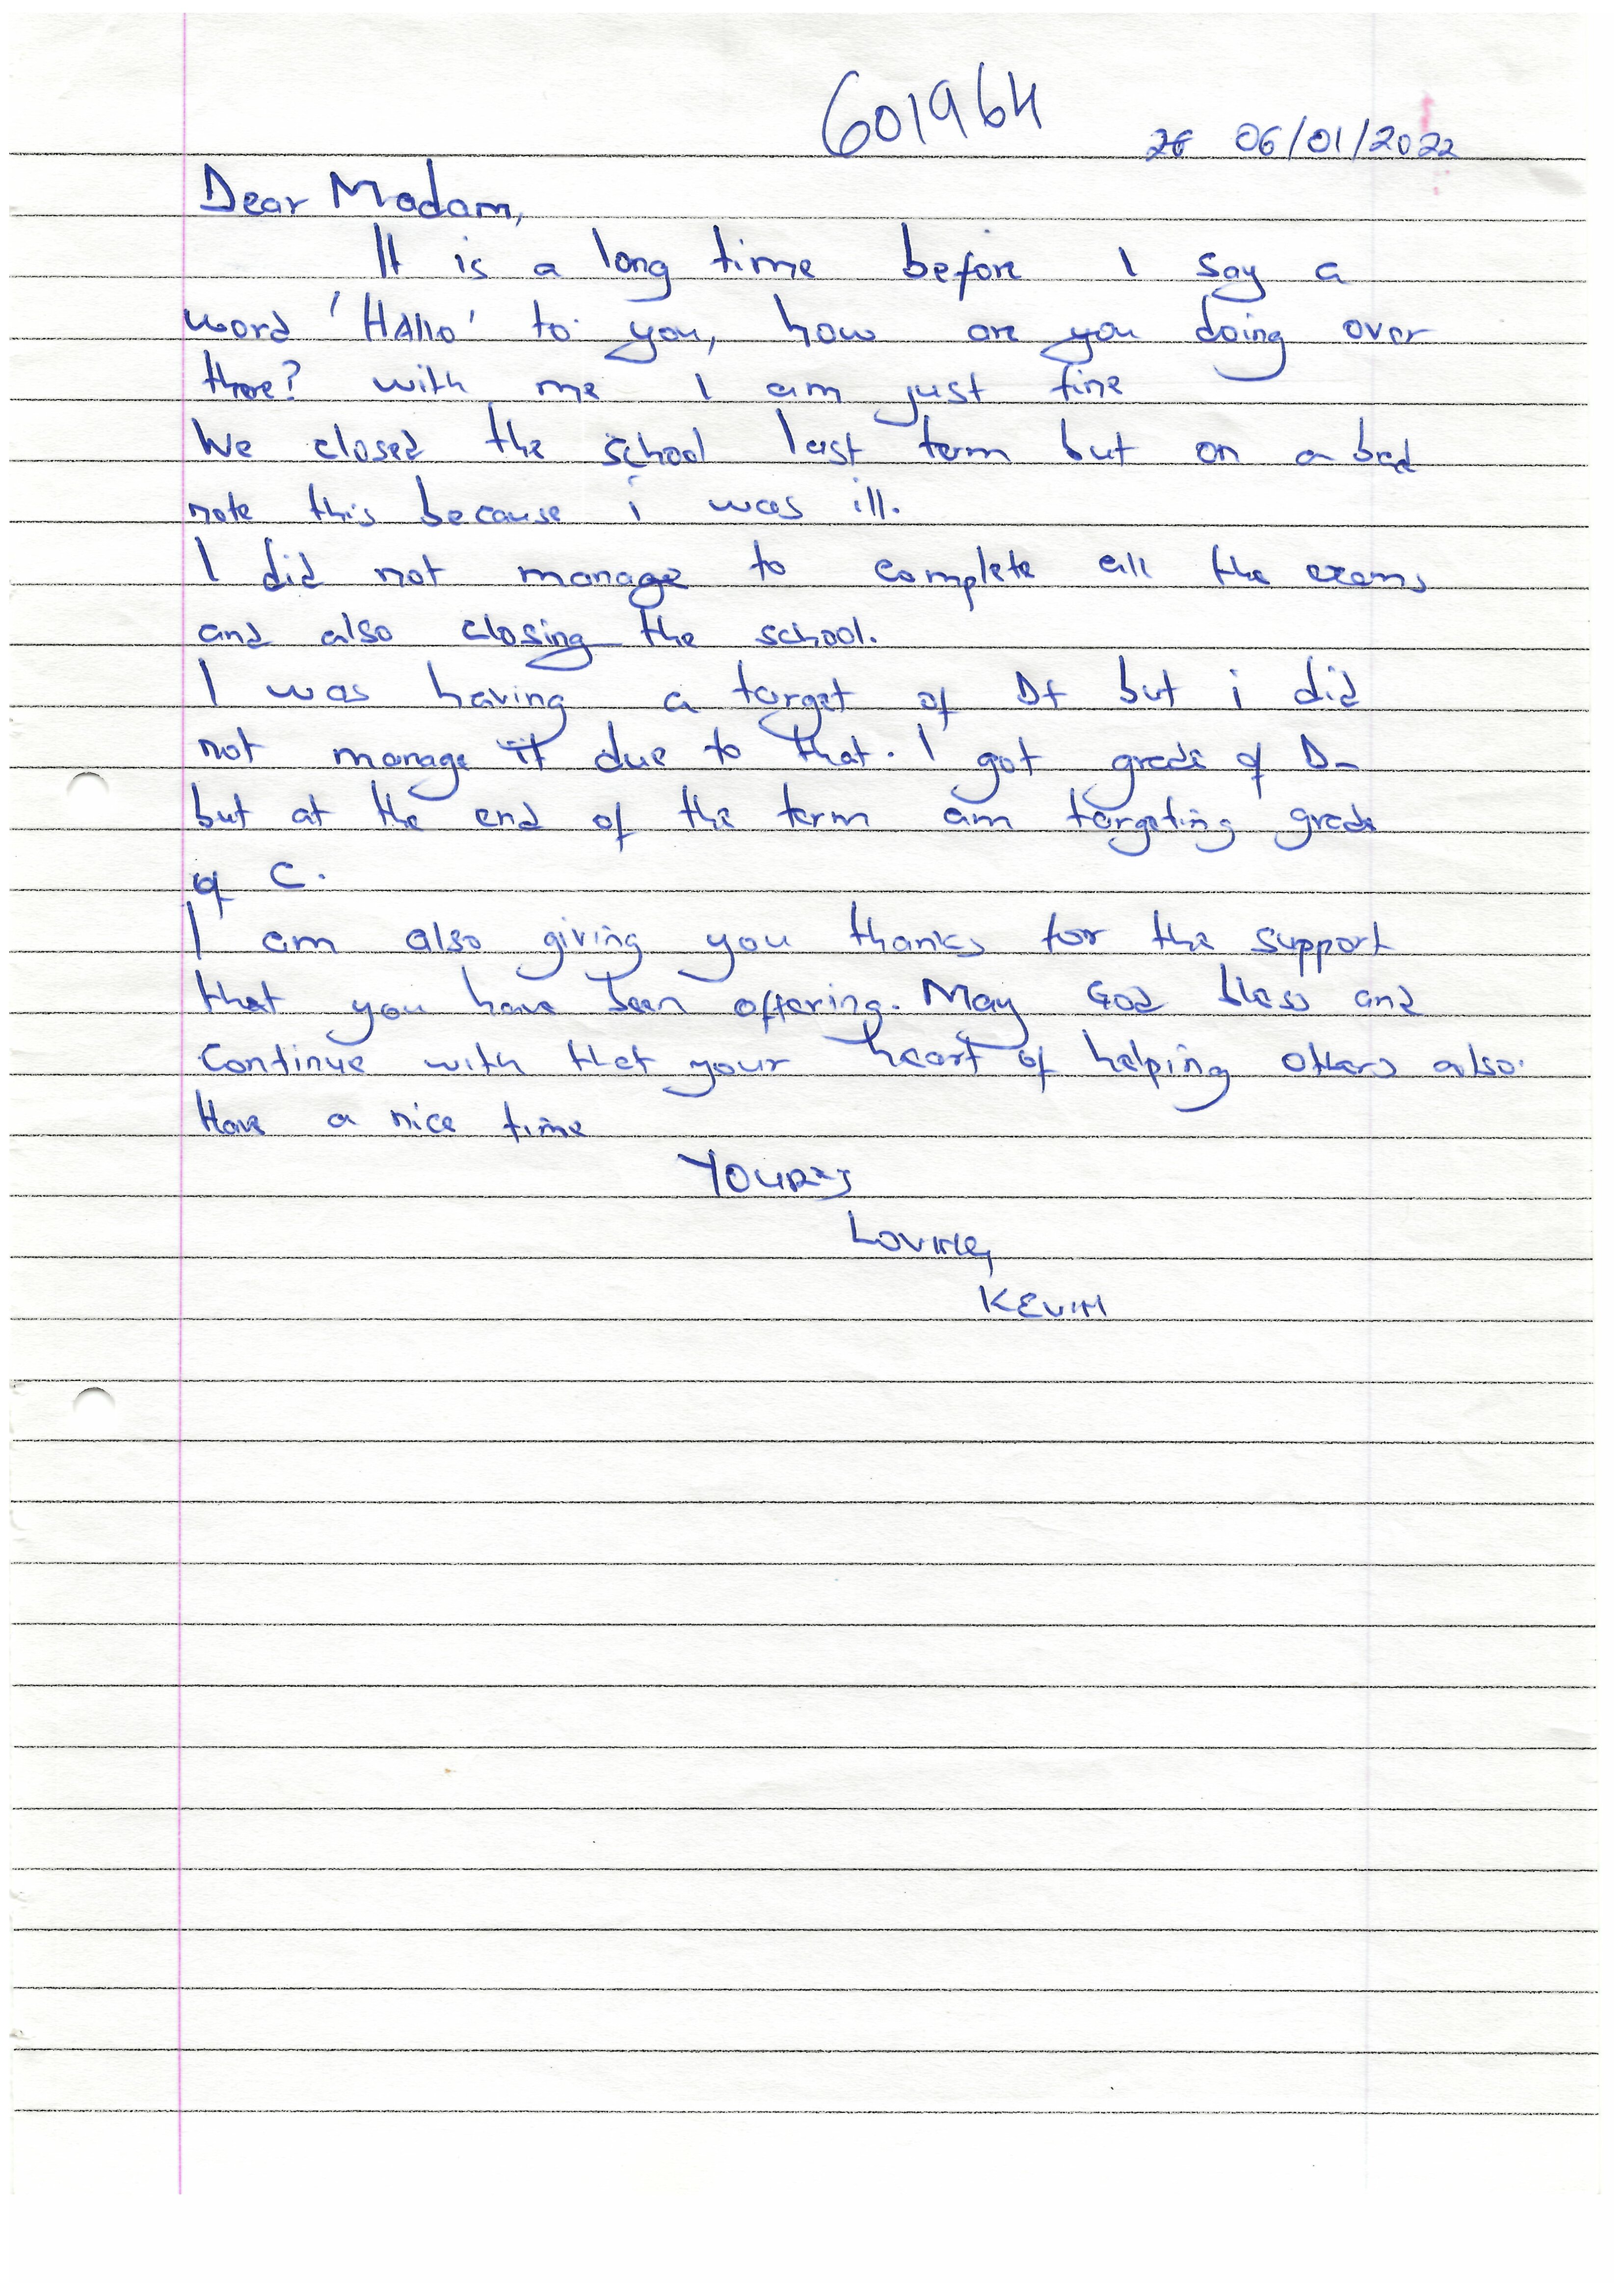 601964
06/01/2022
Dear Madam,
It is a long time before I say a
word 'Hallo' to you, how are you doing over
there? with me I am just fine
We closed the school last term but on a bad
note this because i was ill.
I did not manage to complete all the exams
and also closing the school.
I was having a target of D+ but i did
not manage it due to that. I got grade of D-
but at the end of the term am targeting grade
of C.
I am also giving you thanks for the support
that you have been offering. May God bless and
Continue with that your heart of helping others also.
Have a nice time
YOURS
LOVING,
KEVIN